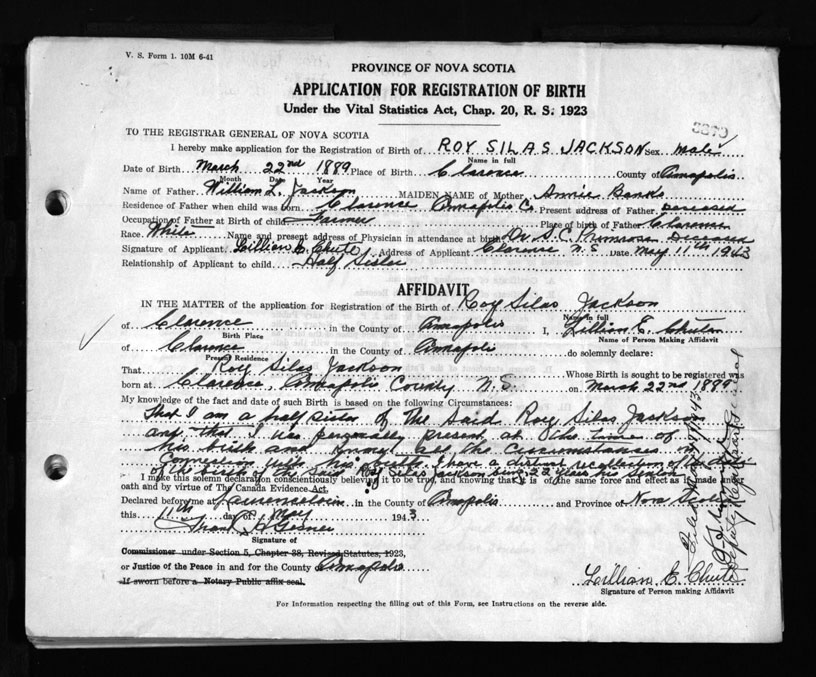 V. S. Form 1. 10M 6-41
PROVINCE OF NOVA SCOTIA
APPLICATION FOR REGISTRATION OF BIRTH
Under the Vital Statistics Act, Chap. 20, R. S. 1923
TO THE REGISTRAR GENERAL OF NOVA SCOTIA
I hereby make application for the Registration of Birth of ROY SILAS JACKSON Sex male
Name in full
Date of Birth March 22nd 1889 Place of Birth Clarence County of Annapolis
Month Date Year
Name of Father William L. Jackson MAIDEN NAME of Mother Annie Banks
Residence of Father when child was born Clarence Annapolis Co. Present address of Father Deceased
Occupation of Father at Birth of child Farmer Place of birth of Father Clarence
Race White Name and present address of Physician in attendance at birth Dr. S. C. Primrose Deceased
Signature of Applicant Lillian E. Chute Address of Applicant Clarence N. S. Date May 11th 1943
Relationship of Applicant to child Half Sister
AFFIDAVIT
IN THE MATTER of the application for Registration of the Birth of Roy Silas Jackson
Name in full
of Clarence in the County of Annapolis I, Lillian E. Chute
Birth Place Name of Person Making Affidavit
of Clarence in the County of Annapolis do solemnly declare:
Present Residence
That Roy Silas Jackson Whose Birth is sought to be registered was
born at Clarence, Annapolis County N. S. on March 22nd 1889
My knowledge of the fact and date of such Birth is based on the following Circumstances:
That I am a half sister of the said Roy Silas Jackson
and that I was personally present at the time of
his birth and know all the circumstances in
connection with his birth. I have a direct recollection of the
of the birth of the said Roy Silas Jackson being 22 years his senior
I make this solemn declaration conscientiously believing it to be true, and knowing that it is of the same force and effect as if made under
oath and by virtue of The Canada Evidence Act.
Declared before me at Lawrencetown in the County of Annapolis and Province of Nova Scotia
this 11th day of May 1943
Frank H. Gesner
Signature of
Commissioner under Section 5, Chapter 38, Revised Statutes, 1923,
or Justice of the Peace in and for the County Annapolis
If sworn before a Notary Public affix seal.
Lillian E. Chute
Signature of Person making Affidavit
For Information respecting the filling out of this Form, see Instructions on the reverse side.
Filed May 1943
Deputy Registrar General